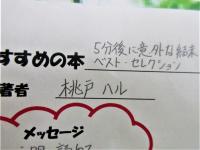 5分後に意外な結末
ベスト・セレクション
すすめの本
著者 桃戸ハル
メッセージ